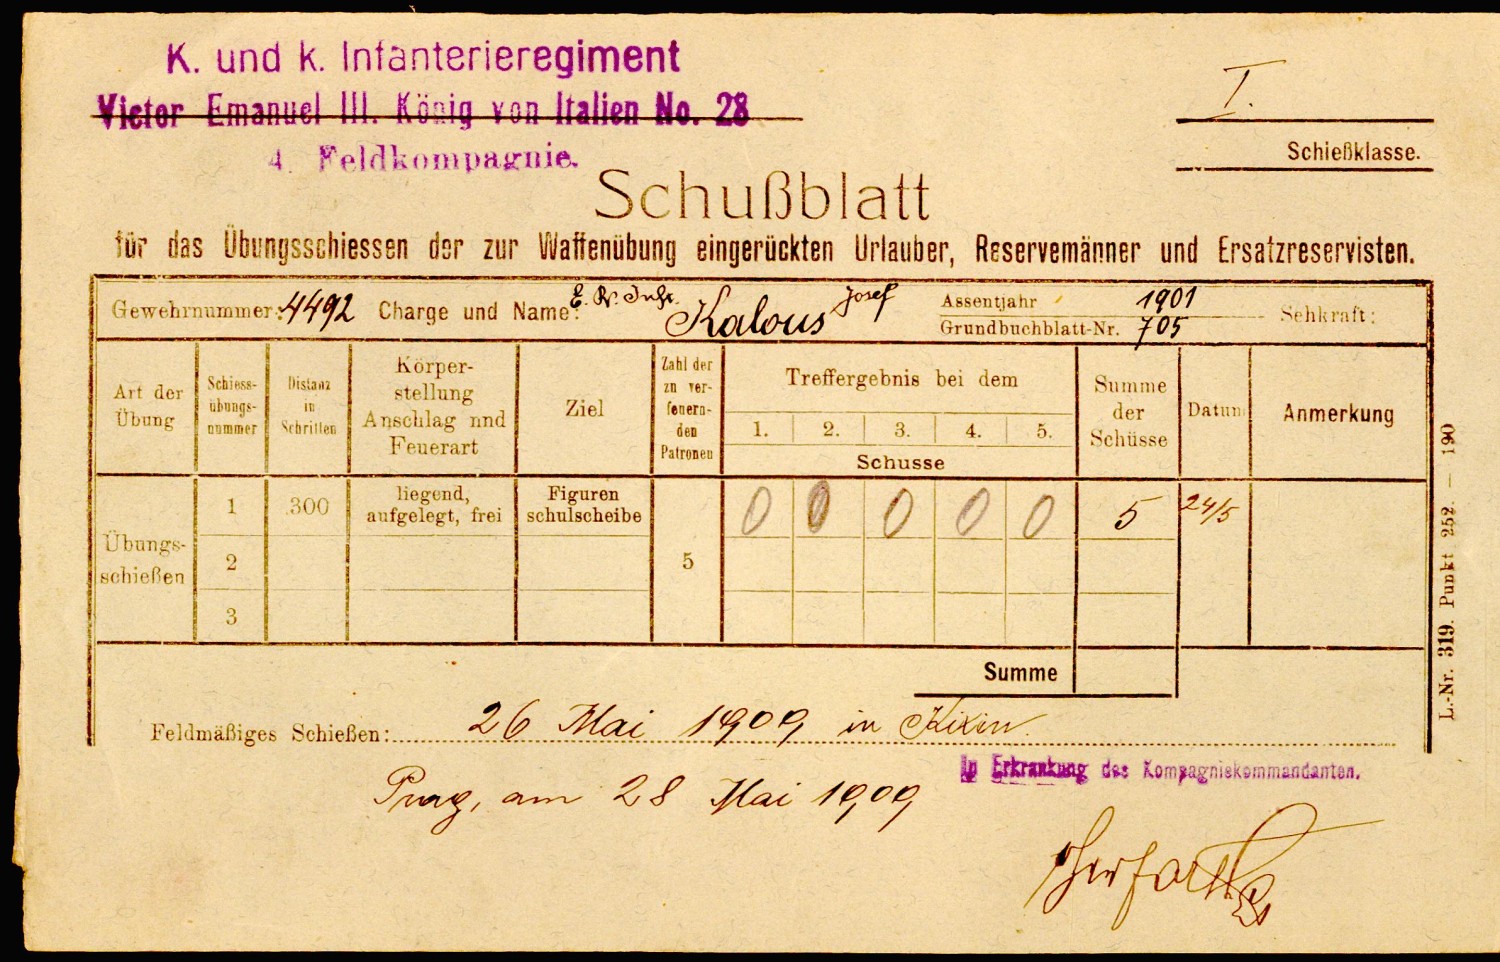 K. und k. Infanterieregiment
Victor Emanuel III. König von Italien No. 28
4. Feldkompagnie.
I.
Schießklasse.
Schußblatt
für das Übungsschiessen der zur Waffenübung eingerückten Urlauber, Reservemänner und Ersatzreservisten.
Gewehrnummer: 4492 Charge und Name: E. R. Inft. Kalous Josef Assentjahr 1901 Grundbuchblatt-Nr. 705 Sehkraft:
Art der Übung
Schiess-übungs-nummer
Distanz in Schritten
Körper-stellung Anschlag nnd Feuerart
Ziel
Zahl der zu ver-feuern-den Patronen
Treffergebnis bei dem
1. 2. 3. 4. 5.
Schusse
Summe der Schüsse
Datum
Anmerkung
Übungs-schießen
1 300 liegend, aufgelegt, frei Figuren schulscheibe 0 0 0 0 0 5 24/5
2 5
3
Summe
Feldmäßiges Schießen: 26 Mai 1909 in
Prag, am 28 Mai 1909
In Erkrankung des Kompagniekommandanten.
L.-Nr. 319. Punkt 252. — 190